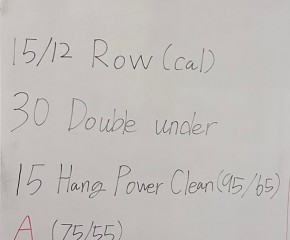 15/12 Row (cal)
30 Double under
15 Hang Power Clean (95/65)
A (75/55)